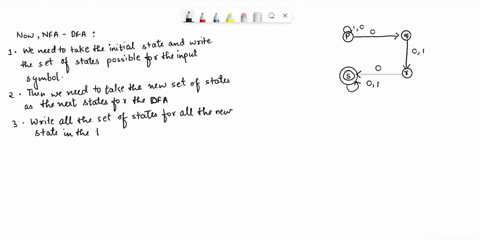 Now, NFA - DFA :
1. We need to take the initial state and write
the set of states possible for the input
symbol.
2. Then we need to take the new set of states
as the next states for the DFA
3. Write all the set of states for all the new
state in the
P
1, 0
0
q
0, 1
r
0
S
0, 1